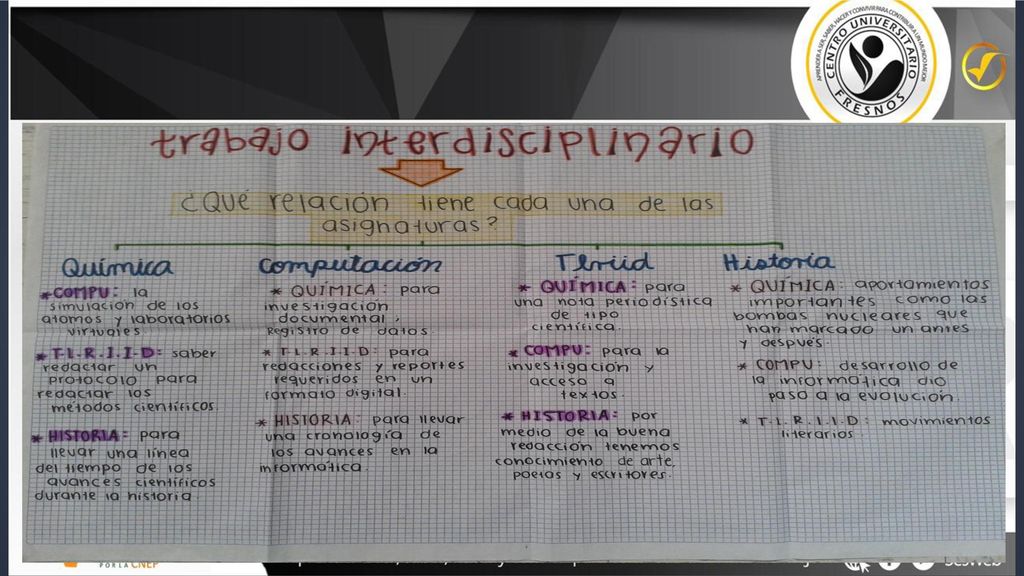 APRENDER A SER, SABER, HACER Y CONVIVIR PARA CONTRIBUIR A UN MUNDO MEJOR
CENTRO UNIVERSITARIO
FRESNOS
trabajo interdisciplinario
¿Qué relación tiene cada una de las
asignaturas?
Química
* COMPU: la
simulación de los
atomos y laboratorios
virtuales.
* T.L.R.I.I.D: saber
redactar un
protocolo para
redactar los
métodos científicos.
* HISTORIA: para
llevar una línea
del tiempo de los
avances científicos
durante la historia.
Computación
* QUÍMICA: para
investigación
documental,
Registro de datos.
* T.L.R.I.I.D: para
redacciones y reportes
requeridos en un
formato digital.
* HISTORIA: para llevar
una cronología de
los avances en la
informática.
Tlriid
* QUÍMICA: para
una nota periodística
de tipo
científica.
* COMPU: para la
investigación y
acceso a
textos.
* HISTORIA: por
medio de la buena
redacción tenemos
conocimiento de arte,
poetas y escritores.
Historia
* QUÍMICA: aportamientos
importantes como las
bombas nucleares que
han marcado un antes
y después.
* COMPU: desarrollo de
la informática dio
paso a la evolución.
* T.L.R.I.I.D: movimientos
literarios.
POR LA CNEP